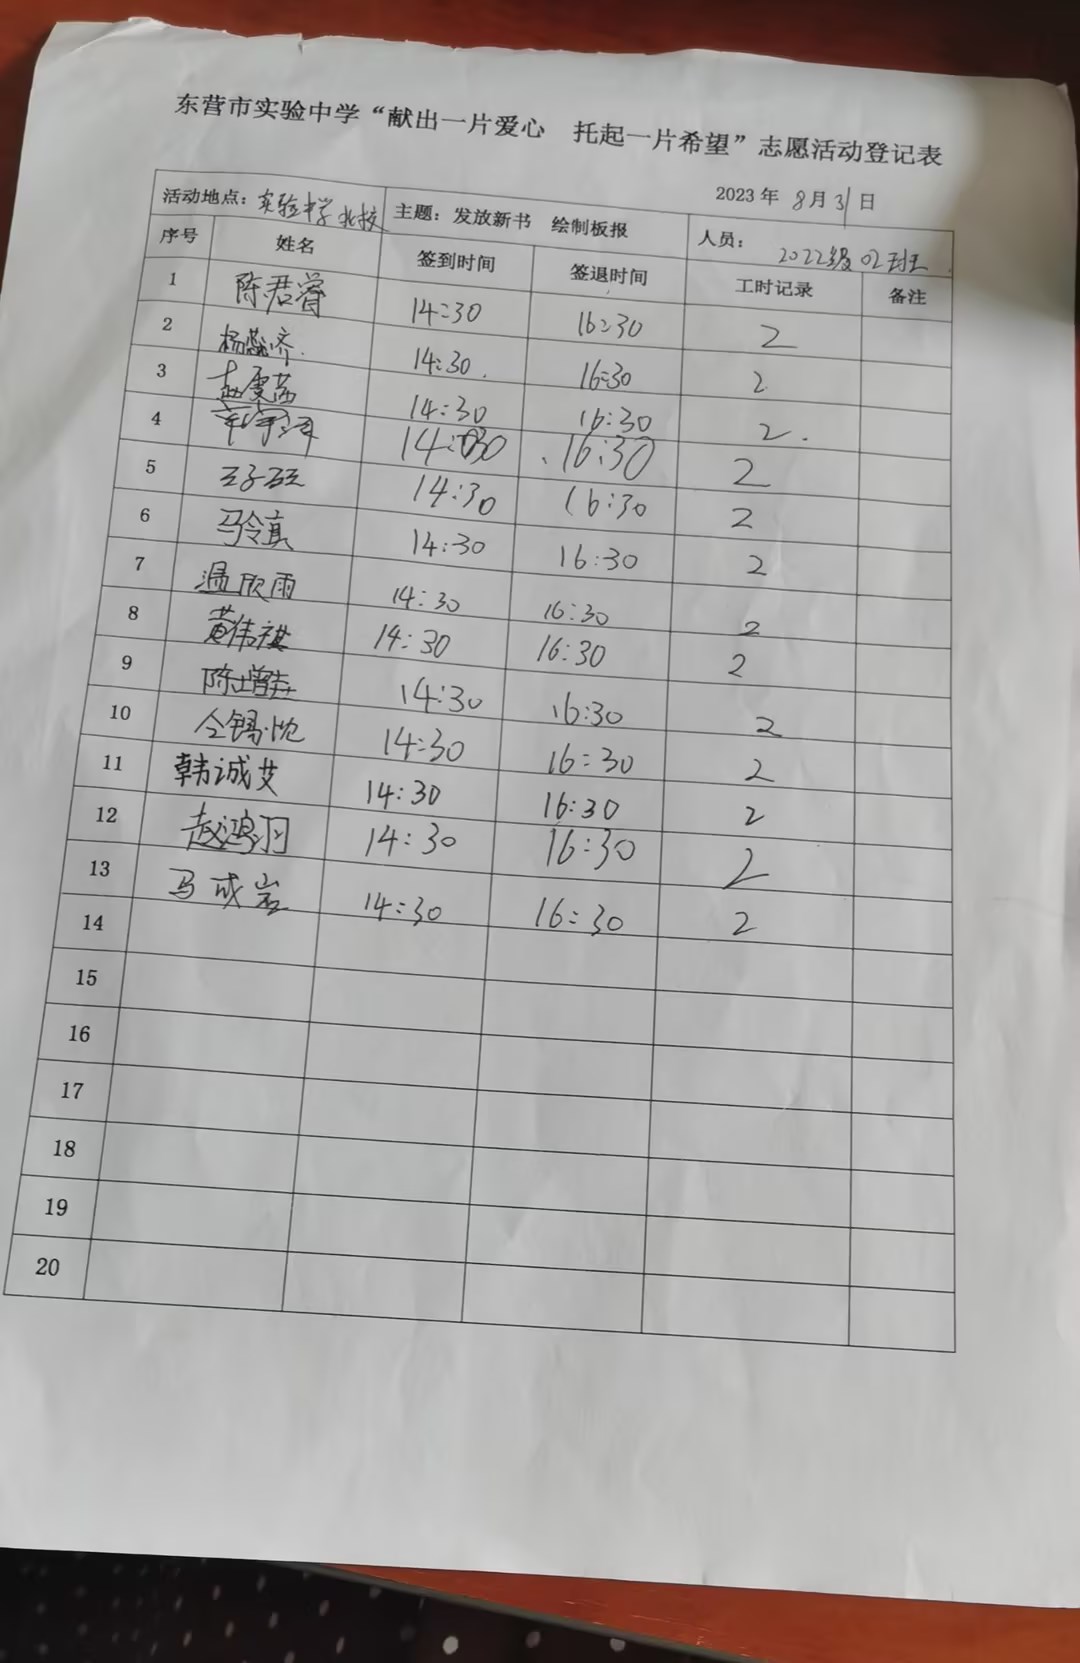 东营市实验中学“献出一片爱心 托起一片希望”志愿活动登记表
2023 年 8 月 31 日
活动地点：实验中学北校 主题：发放新书 绘制板报 人员： 2022级02班
序号 姓名 签到时间 签退时间 工时记录 备注
1 陈君睿 14:30 16:30 2
2 14:30 16:30 2
3 赵雯茜 14:30 16:30 2
4 14:30 16:30 2
5 王子 14:30 16:30 2
6 马令真 14:30 16:30 2
7 温欣雨 14:30 16:30 2
8 黄伟祺 14:30 16:30 2
9 陈增 14:30 16:30 2
10 仝锡忱 14:30 16:30 2
11 韩诚艾 14:30 16:30 2
12 赵鸿羽 14:30 16:30 2
13 马成岩 14:30 16:30 2
14
15
16
17
18
19
20